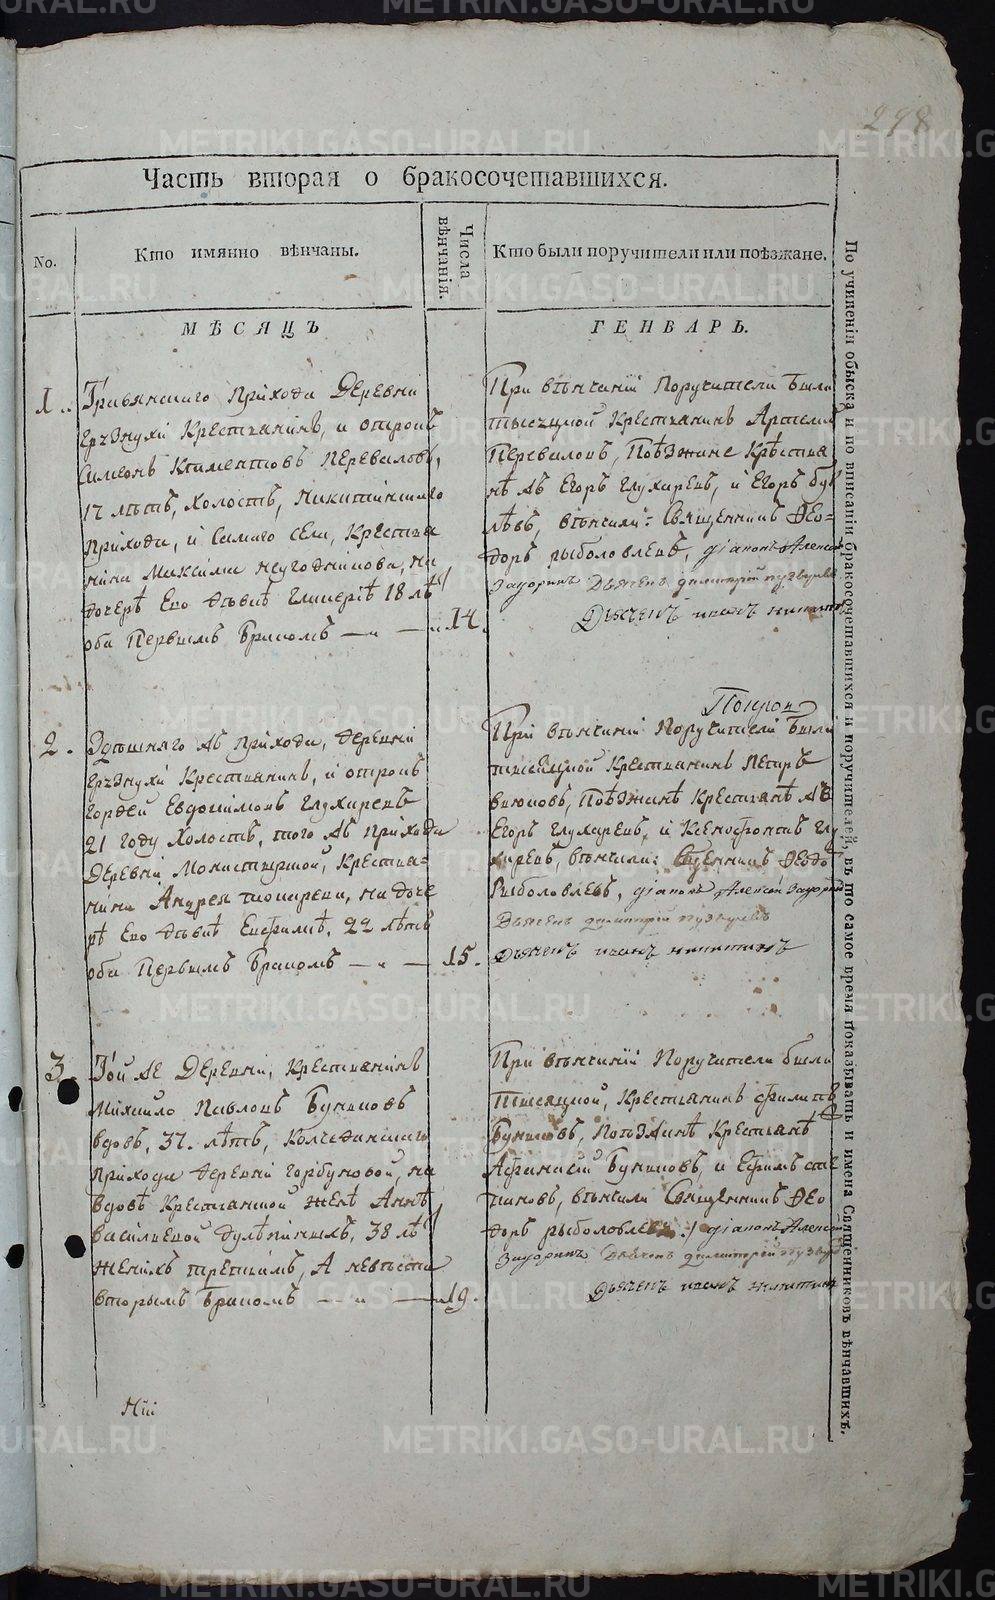 298
Часть вторая о бракосочетавшихся.
No.
Кто имянно вѣнчаны.
Числа вѣнчанія.
Кто были поручители или поѣзжане.
МѢСЯЦЪ
ГЕНВАРЬ.
1.. Грабьянскаго прихода деревни
крестьянинъ, и отрокъ
Симеонъ Климентовъ Переваловъ,
17 лѣтъ, холостъ, никитинскаго
прихода, и самаго села, крестья
нина Максима неугодникова, на
дочерѣ Его дѣвкѣ Гликерiѣ 18 лѣ
оба Первымъ Бракомъ — „ — 14.
При вѣнчанiи Поручители были
тысецкой крестьянинъ Артемiй
Переваловъ, Поѣзжане крѣстья
нѣ Егоръ Глухаревъ, и Егоръ
вѣнчали: Священникъ Фео=
доръ рыболовлевъ, дiаконъ Алексѣй
Задоринъ Дьячекъ димитрiй
Дьячекъ иванъ никитинъ
2. Здѣшняго же прихода, деревни
крестьянинъ, и отрокъ
Гордей Евдокимовъ Глухаревъ
21 году холостъ, того же прихода
деревни Монастырской, крестья=
нина Андрея на доче
рѣ Его дѣвкѣ Евфимiѣ, 22 лѣтъ
оба Первымъ Бракомъ — „ — 15.
При вѣнчанiи Поручители были
тысяцкой крестьянинъ Петръ
Поѣзжанѣ крестьянѣ же
Егоръ Глухаревъ, и Ксенофонтъ Глу
харевъ, вѣнчали: Сщенникъ Феодо
Рыболовлевъ, дiаконъ Алексѣй Задорин
Дьячекъ димитрiй
дьячекъ иванъ никитинъ
3. Той же деревни, крестьянинъ
Михайло Павловъ Бунковъ
вдовъ, 37. лѣтъ, Колчеданскаго
прихода деревни горбуновой, на
вдовѣ крестьянской женѣ Аннѣ
васильевой 38 лѣ
женихъ третьимъ, А невѣста
вторымъ Бракомъ — „ — 19.
При вѣнчанiи Поручители были
Тысяцкой, крестьянинъ филипъ
Бунковъ, поѣзжанѣ крестьянѣ
Афанасiй Бунковъ, и Ефимъ сте
пановъ, вѣнчали Священникъ Фео
доръ рыболовлевъ дiаконъ Алексѣй
Задоринъ Дьячекъ димитрiй
Дьячекъ иванъ никитинъ
По учиненіи обыска и по вписаніи бракосочетавшихся и поручителей, въ то самое время показывать и имена Священниковъ вѣнчавшихъ.
METRIKI.GASO-URAL.RU